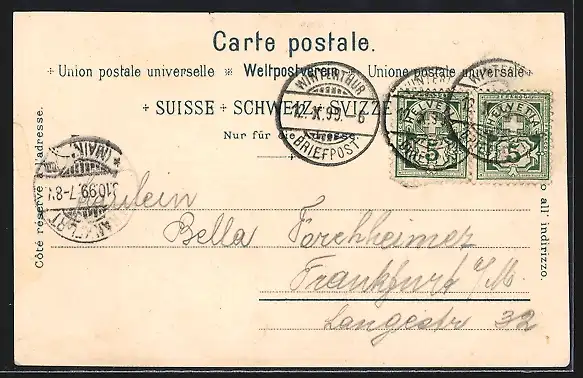 Carte postale.
Union postale universelle Weltpostverein Unione postale universale
SUISSE SCHWEIZ SVIZZERA
Nur für die Adresse.
Côté réservé à l'adresse.
all' indirizzo.
WINTERTHUR
12. X. 99. - 6
BRIEFPOST
HELVETIA
5
HELVETIA
5
(MAIN)
10.99. 7-8
FRANKFURT
Fräulein
Bella Forchheimer
Frankfurt a/M.
Langestr 32